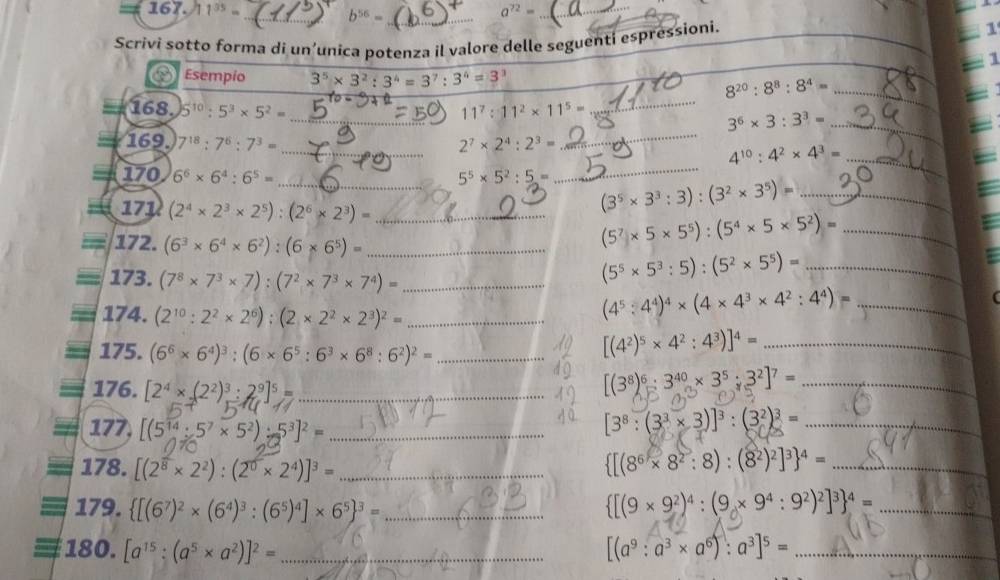 167. 11³⁵ = (11⁵)⁷ b⁵⁶ = (b⁸) a⁷² = (a
Scrivi sotto forma di un'unica potenza il valore delle seguenti espressioni.
Esempio 3⁵ × 3² : 3⁴ = 3⁷ : 3⁴ = 3³
168. 5¹⁰ : 5³ × 5² = 5¹⁰⁻³⁺² = 5⁹ 11⁷ : 11² × 11⁵ = 11¹⁰ 8²⁰ : 8⁸ : 8⁴ = 8⁸
169. 7¹⁸ : 7⁶ : 7³ = 7⁹ 2⁷ × 2⁴ : 2³ = 2⁸ 3⁶ × 3 : 3³ = 3⁴
170. 6⁶ × 6⁴ : 6⁵ = 6 5⁵ × 5² : 5 = 5⁹ 4¹⁰ : 4² × 4³ =
171. (2⁴ × 2³ × 2⁵) : (2⁶ × 2³) = 2³ (3⁵ × 3³ : 3) : (3² × 3⁵) = 3⁰
172. (6³ × 6⁴ × 6²) : (6 × 6⁵) = (5⁷ × 5 × 5⁵) : (5⁴ × 5 × 5²) =
173. (7⁸ × 7³ × 7) : (7² × 7³ × 7⁴) = (5⁵ × 5³ : 5) : (5² × 5⁵) =
174. (2¹⁰ : 2² × 2⁶) : (2 × 2² × 2³)² = (4⁵ : 4⁴)⁴ × (4 × 4³ × 4² : 4⁴) =
175. (6⁶ × 6⁴)³ : (6 × 6⁵ : 6³ × 6⁸ : 6²)² = [(4²)⁵ × 4² : 4³)]⁴ =
176. [2⁴ × (2²)³ : 2⁹]⁵ = [(3⁸)⁶ : 3⁴⁰ × 3⁵ : 3²]⁷ =
177. [(5¹⁴ : 5⁷ × 5²) : 5³]² = [3⁸ : (3³ × 3)]³ : (3²)³ =
178. [(2⁸ × 2²) : (2⁰ × 2⁴)]³ = {[(8⁶ × 8² : 8) : (8²)²]³}⁴ =
179. {[(6⁷)² × (6⁴)³ : (6⁵)⁴] × 6⁵}³ = 6³³ {[(9 × 9²)⁴ : (9 × 9⁴ : 9²)²]³}⁴ =
180. [a¹⁵ : (a⁵ × a²)]² = [(a⁹ : a³ × a⁶) : a³]⁵ =